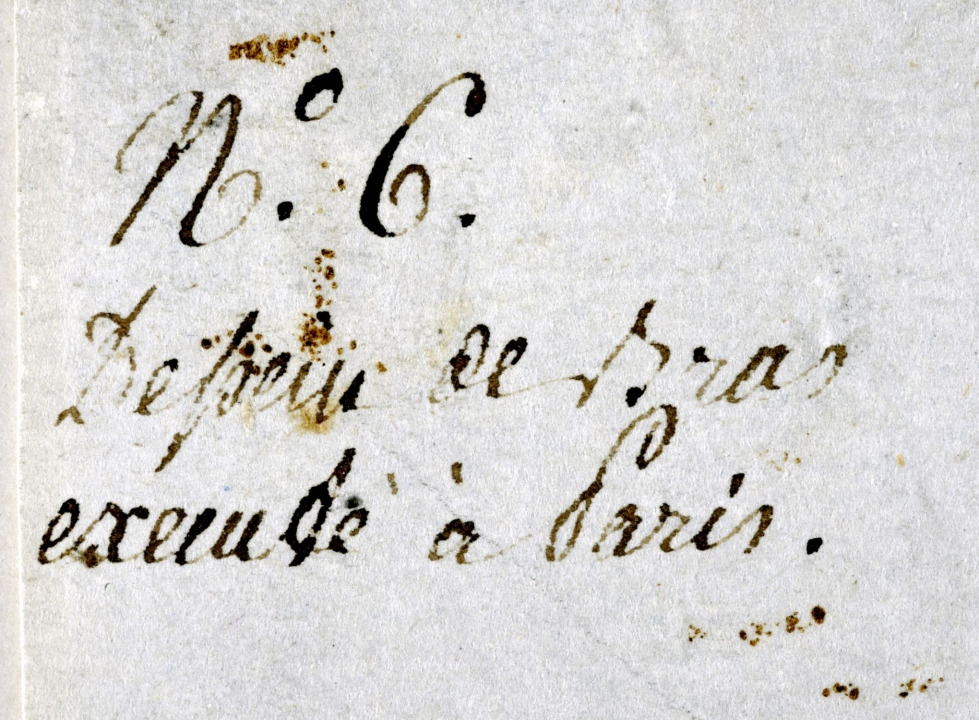 N.º 6.
Dessein de Bras
executé à Paris.